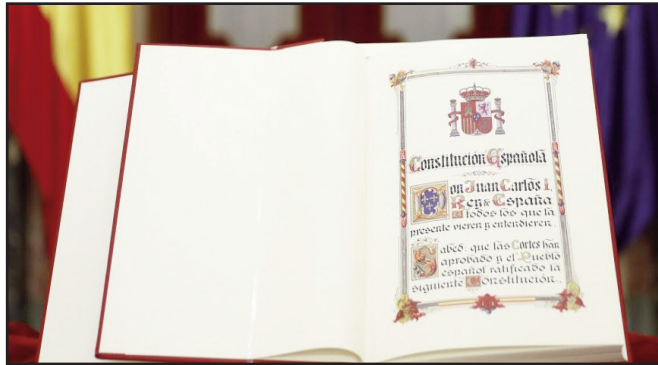 Constitución Española
Don Juan Carlos I,
Rey de España
A todos los que la
presente vieren y entendieren
Sabed: que las Cortes han
aprobado y el Pueblo
español ratificado la
siguiente Constitución..